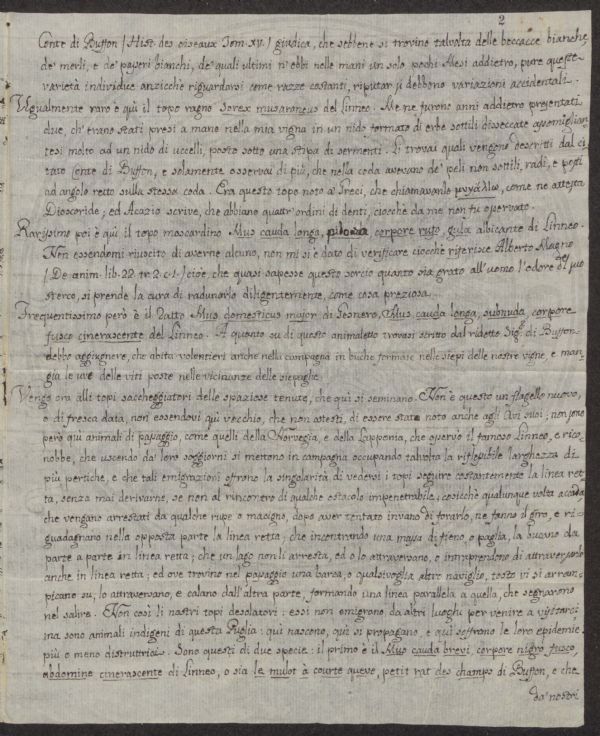 2
Conte di Buffon (Hist. des oiseaux Tom. XV.) giudica, che sebbene si trovino talvolta delle beccacce bianche,
de' merli, e de' passeri bianchi, de' quali ultimi n'ebbi nelle mani un solo pochi Mesi addietro, pure queste
varietà individue anzicchè riguardarsi come razze costanti, riputar si debbono variazioni accidentali.
Ugualmente raro è quì il topo ragno Sorex musaraneus del Linneo. Me ne furono anni addietro presentati
due, ch'erano stati presi a mano nella mia vigna in un nido formato di erbe sottili disseccate assomiglian-
tesi molto ad un nido di uccelli, posto sotto una stiva di sermenti. Li trovai quali vengono descritti dal ci-
tato Conte di Buffon, e solamente osservai di più, che nella coda avevano de' peli non sottili, radi, e posti
ad angolo retto sulla stessa coda. Era questo topo noto a' Greci, che chiamavanlo, come ne attesta
Dioscoride; ed Acazio scrive, che abbiano quattr'ordini di denti, ciocchè da me non fu osservato.
Rarissimo poi è quì il topo moscardino Mus cauda longa, pilosa, corpore rufo, gula albicante di Linneo.
Non essendomi riuscito di averne alcuno, non mi si è dato di verificare ciocchè riferisce Alberto Magno
(De anim. lib. 22. tr. 2. c. 1.) cioè, che quasi sapesse questo sorcio quanto sia grato all'uomo l'odore del suo
sterco, si prende la cura di radunarlo diligentemente, come cosa preziosa.
Frequentissimo però è il Ratto Mus domesticus major di Gesnero, Mus cauda longa, subnuda, corpore
fusco cinerascente del Linneo. A quanto su di questo animaletto trovasi scritto dal ridetto Sig.r di Buffon
debbo aggiugnere, che abita volentieri anche nella campagna in buche formate nelle siepi delle nostre vigne, e man-
gia le uve delle viti poste nelle vicinanze delle siepaglie.
Vengo ora alli topi saccheggiatori delle spaziose tenute, che quì si seminano. Non è questo un flagello nuovo,
o di fresca data, non essendovi quì vecchio, che non attesti, di essere stato noto anche agli Avi suoi; non sono
però quì animali di passaggio, come quelli della Norvegia, e della Lapponia, che osservò il famoso Linneo, e rico-
nobbe, che uscendo da' loro soggiorni si mettono in campagna occupando talvolta la riflessibile larghezza di
più pertiche, e che tali emigrazioni offrono la singolarità di vedersi i topi seguire costantemente la linea ret-
ta, senza mai derivarne, se non al rincontro di qualche ostacolo impenetrabile; cosicchè qualunque volta accada
che vengano arrestati da qualche rupe o macigno, dopo aver tentato invano di forarlo, ne fanno il giro, e ri-
guadagnano nella opposta parte la linea retta; che incontrando una massa di fieno, o paglia, la bucano da
parte a parte in linea retta; che un lago non li arresta, ed o lo attraversano, o intraprendono di attraversarlo
anche in linea retta; ed ove trovino nel passaggio una barca, o qualsivoglia altro naviglio, tosto vi si arram-
picano su, lo attraversano, e calano dall'altra parte, formando una linea parallela a quella, che segnarono
nel salire. Non così li nostri topi desolatori: essi non emigrano da altri luoghi per venire a visitarci
ma sono animali indigeni di questa Puglia: quì nascono, quì si propagano, e quì soffrono le loro epidemie
più o meno distruttrici. Sono questi di due specie: il primo è il Mus cauda brevi, corpore nigro fusco,
abdomine cinerascente di Linneo, o sia le mulot à courte queue, petit rat des champs di Buffon, e che
da' nostri